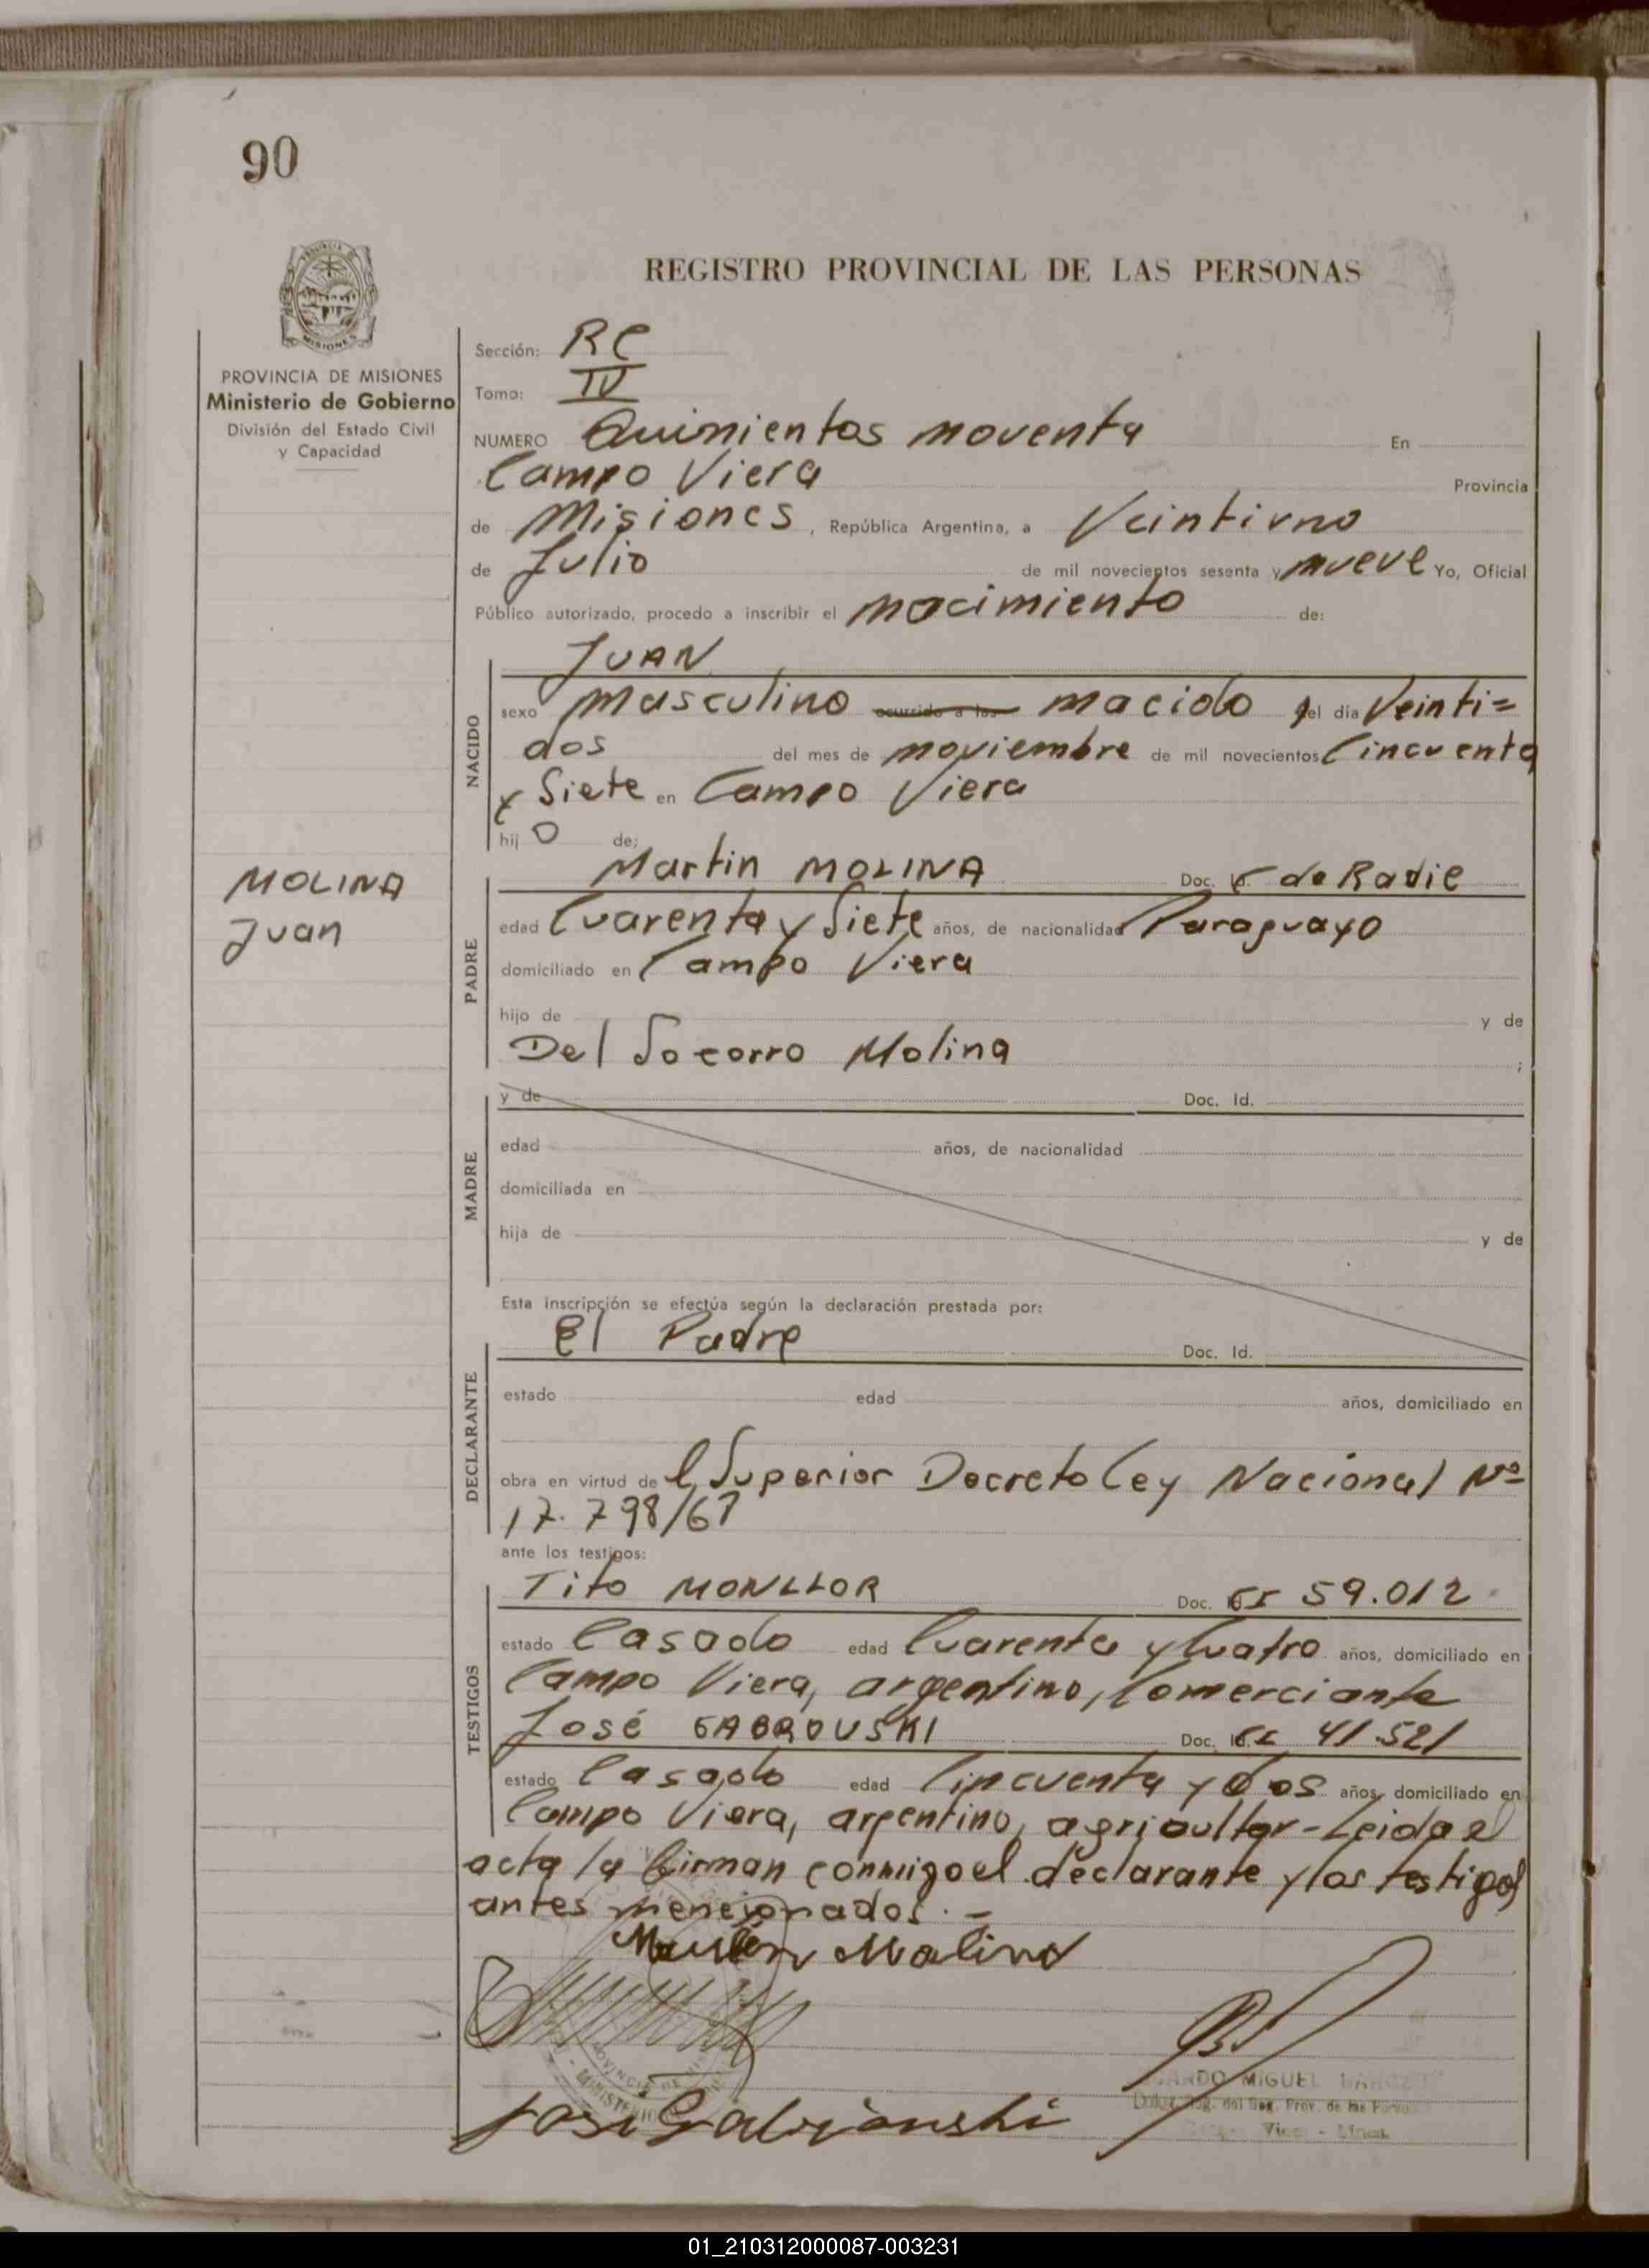 90
REGISTRO PROVINCIAL DE LAS PERSONAS
MISIONES
PROVINCIA DE MISIONES
Ministerio de Gobierno
División del Estado Civil
y Capacidad
Sección: RC
Tomo: IV
NUMERO Quinientos noventa En
Campo Viera Provincia
de Misiones, República Argentina, a Veintiuno
de Julio de mil novecientos sesenta y nueve Yo, Oficial
Público autorizado, procedo a inscribir el nacimiento de:
NACIDO
JUAN
sexo masculino ocurrido a las nacido el día Veinti=
dos del mes de noviembre de mil novecientos Cincuenta
y Siete en Campo Viera
hijo de:
MOLINA
Juan
PADRE
Martin MOLINA Doc. de Radie
edad Cuarenta y Siete años, de nacionalidad Paraguayo
domiciliado en Campo Viera
hijo de y de
Del Socorro Molina ;
MADRE
y de Doc. Id.
edad años, de nacionalidad
domiciliada en
hija de y de
Esta inscripción se efectúa según la declaración prestada por:
DECLARANTE
El Padre Doc. Id.
estado edad años, domiciliado en
obra en virtud del Superior Decreto Ley Nacional Nº
17.798/67
ante los testigos:
TESTIGOS
Tito MONLLOR Doc. 59.012
estado Casado edad Cuarenta y Cuatro años, domiciliado en
Campo Viera, argentino, Comerciante
José GABROUSKI Doc. 41.521
estado Casado edad Cincuenta y dos años, domiciliado en
Campo Viera, argentino, agricultor - Leida el
acta la firman conmigo el declarante y los testigos
antes mencionados. -
Martin Molina
MIGUEL
del Reg. Prov. de las
01_210312000087-003231